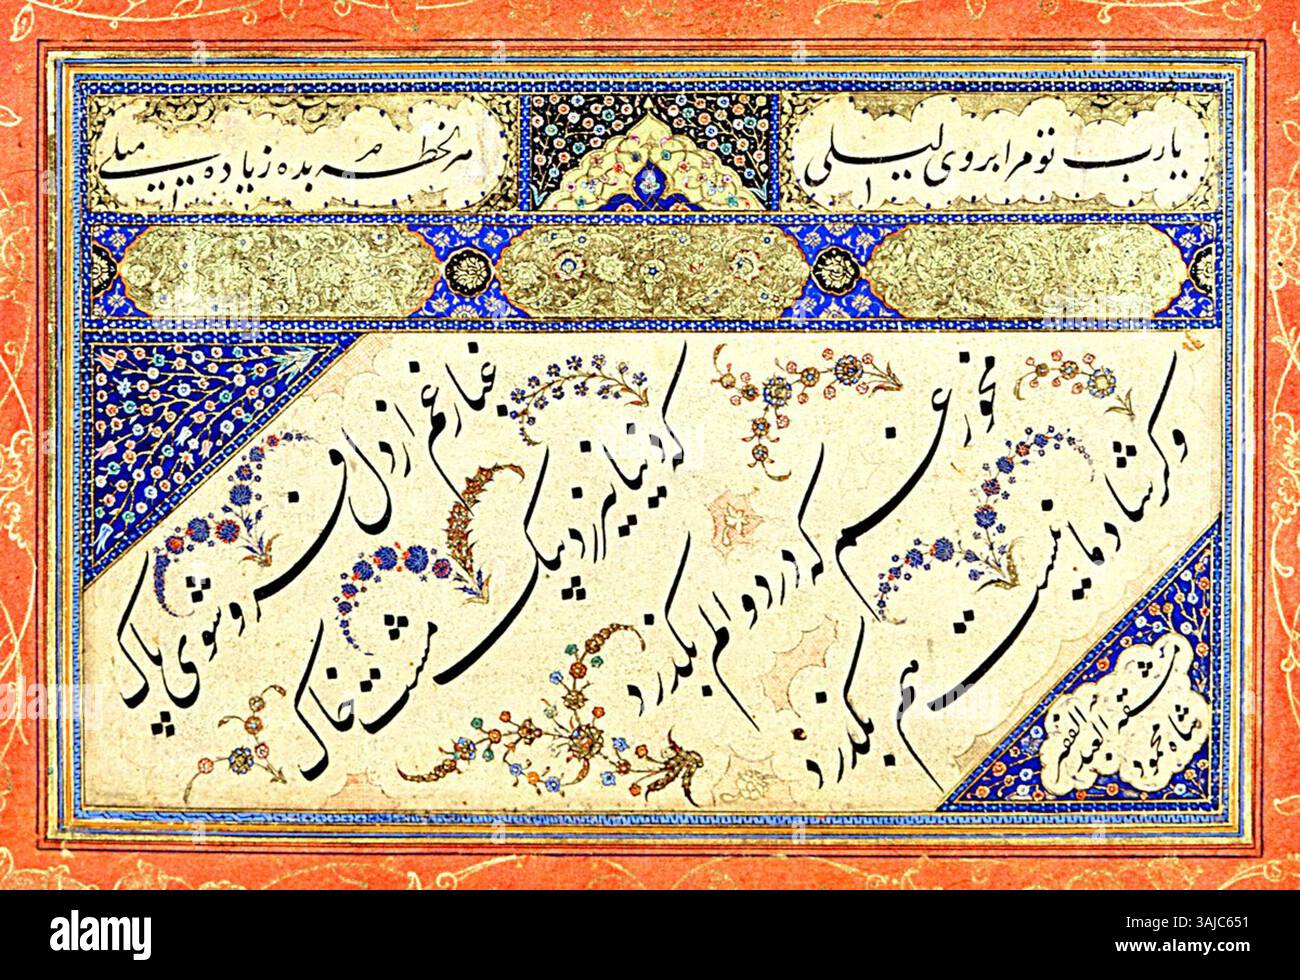 یارب تو مرا بروی لیلی
هر لحظه بده زیاده میلی
غبار غم از دل فروشوی پاک
که دنیا نیرزد بیک مشت خاک
مخور غم که درد و الم بگذرد
وگر شادمانیست هم بگذرد
مشقه العبد الفقیر
شاه محمود
alamy
Image ID: 3AJC651
www.alamy.com